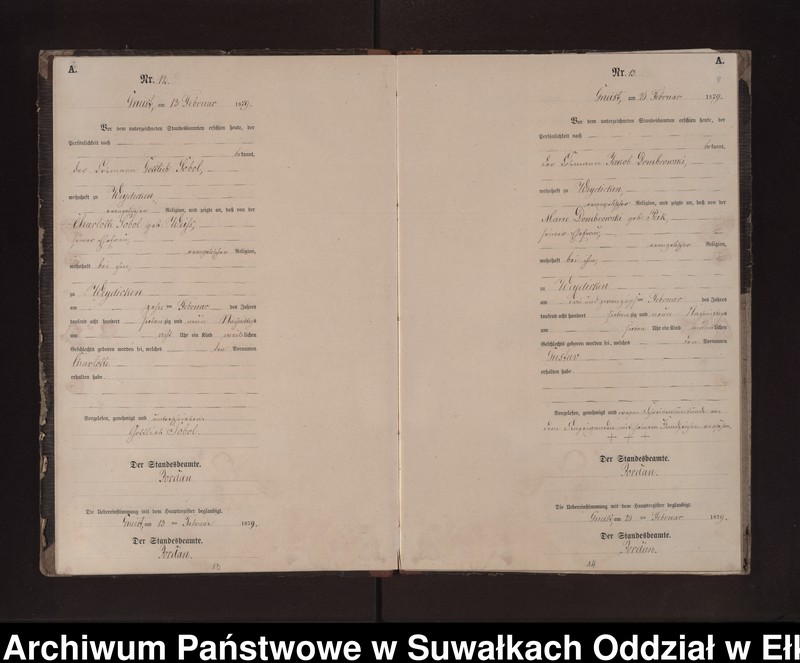 A.
Nr. 12.
am 13 Februar 1879.
Vor dem unterzeichneten Standesbeamten erschien heute, der
Persönlichkeit nach
bekannt,
der Losmann Gottlieb Sobol,
wohnhaft zu Weydicken,
evangelischer Religion, und zeigte an, daß von der
Charlotte Sobol geb. Weiß,
seiner Ehefrau,
evangelischer Religion,
wohnhaft bei ihm,
zu Weydicken
am ten Februar des Jahres
tausend acht hundert siebenzig und neun Nachmittags
um Uhr ein Kind weiblichen
Geschlechts geboren worden sei, welches den Vornamen
Charlotte
erhalten habe
Vorgelesen, genehmigt und unterschrieben
Gottlieb Sobol.
Der Standesbeamte.
Jordan
Die Uebereinstimmung mit dem Hauptregister beglaubigt.
am 13 ten Februar 1879.
Der Standesbeamte.
Jordan.
13
A.
Nr. 13.
am 23 Februar 1879.
Vor dem unterzeichneten Standesbeamten erschien heute, der
Persönlichkeit nach
bekannt,
der Losmann Jacob Dombrowski,
wohnhaft zu Weydicken,
evangelischer Religion, und zeigte an, daß von der
Marie Dombrowski geb. Pik,
seiner Ehefrau,
evangelischer Religion,
wohnhaft bei ihm,
zu Weydicken
am ten Februar des Jahres
tausend acht hundert siebenzig und neun
um sieben Uhr ein Kind männlichen
Geschlechts geboren worden sei, welches den Vornamen
Gustav
erhalten habe
Vorgelesen, genehmigt und wegen Schreibensunkunde von
dem Anzeigenden mit seinem Handzeichen versehen.
+ + +
Der Standesbeamte.
Jordan.
Die Uebereinstimmung mit dem Hauptregister beglaubigt.
am 23 ten Februar 1879.
Der Standesbeamte.
Jordan.
14
Archiwum Państwowe w Suwałkach Oddział w Eł